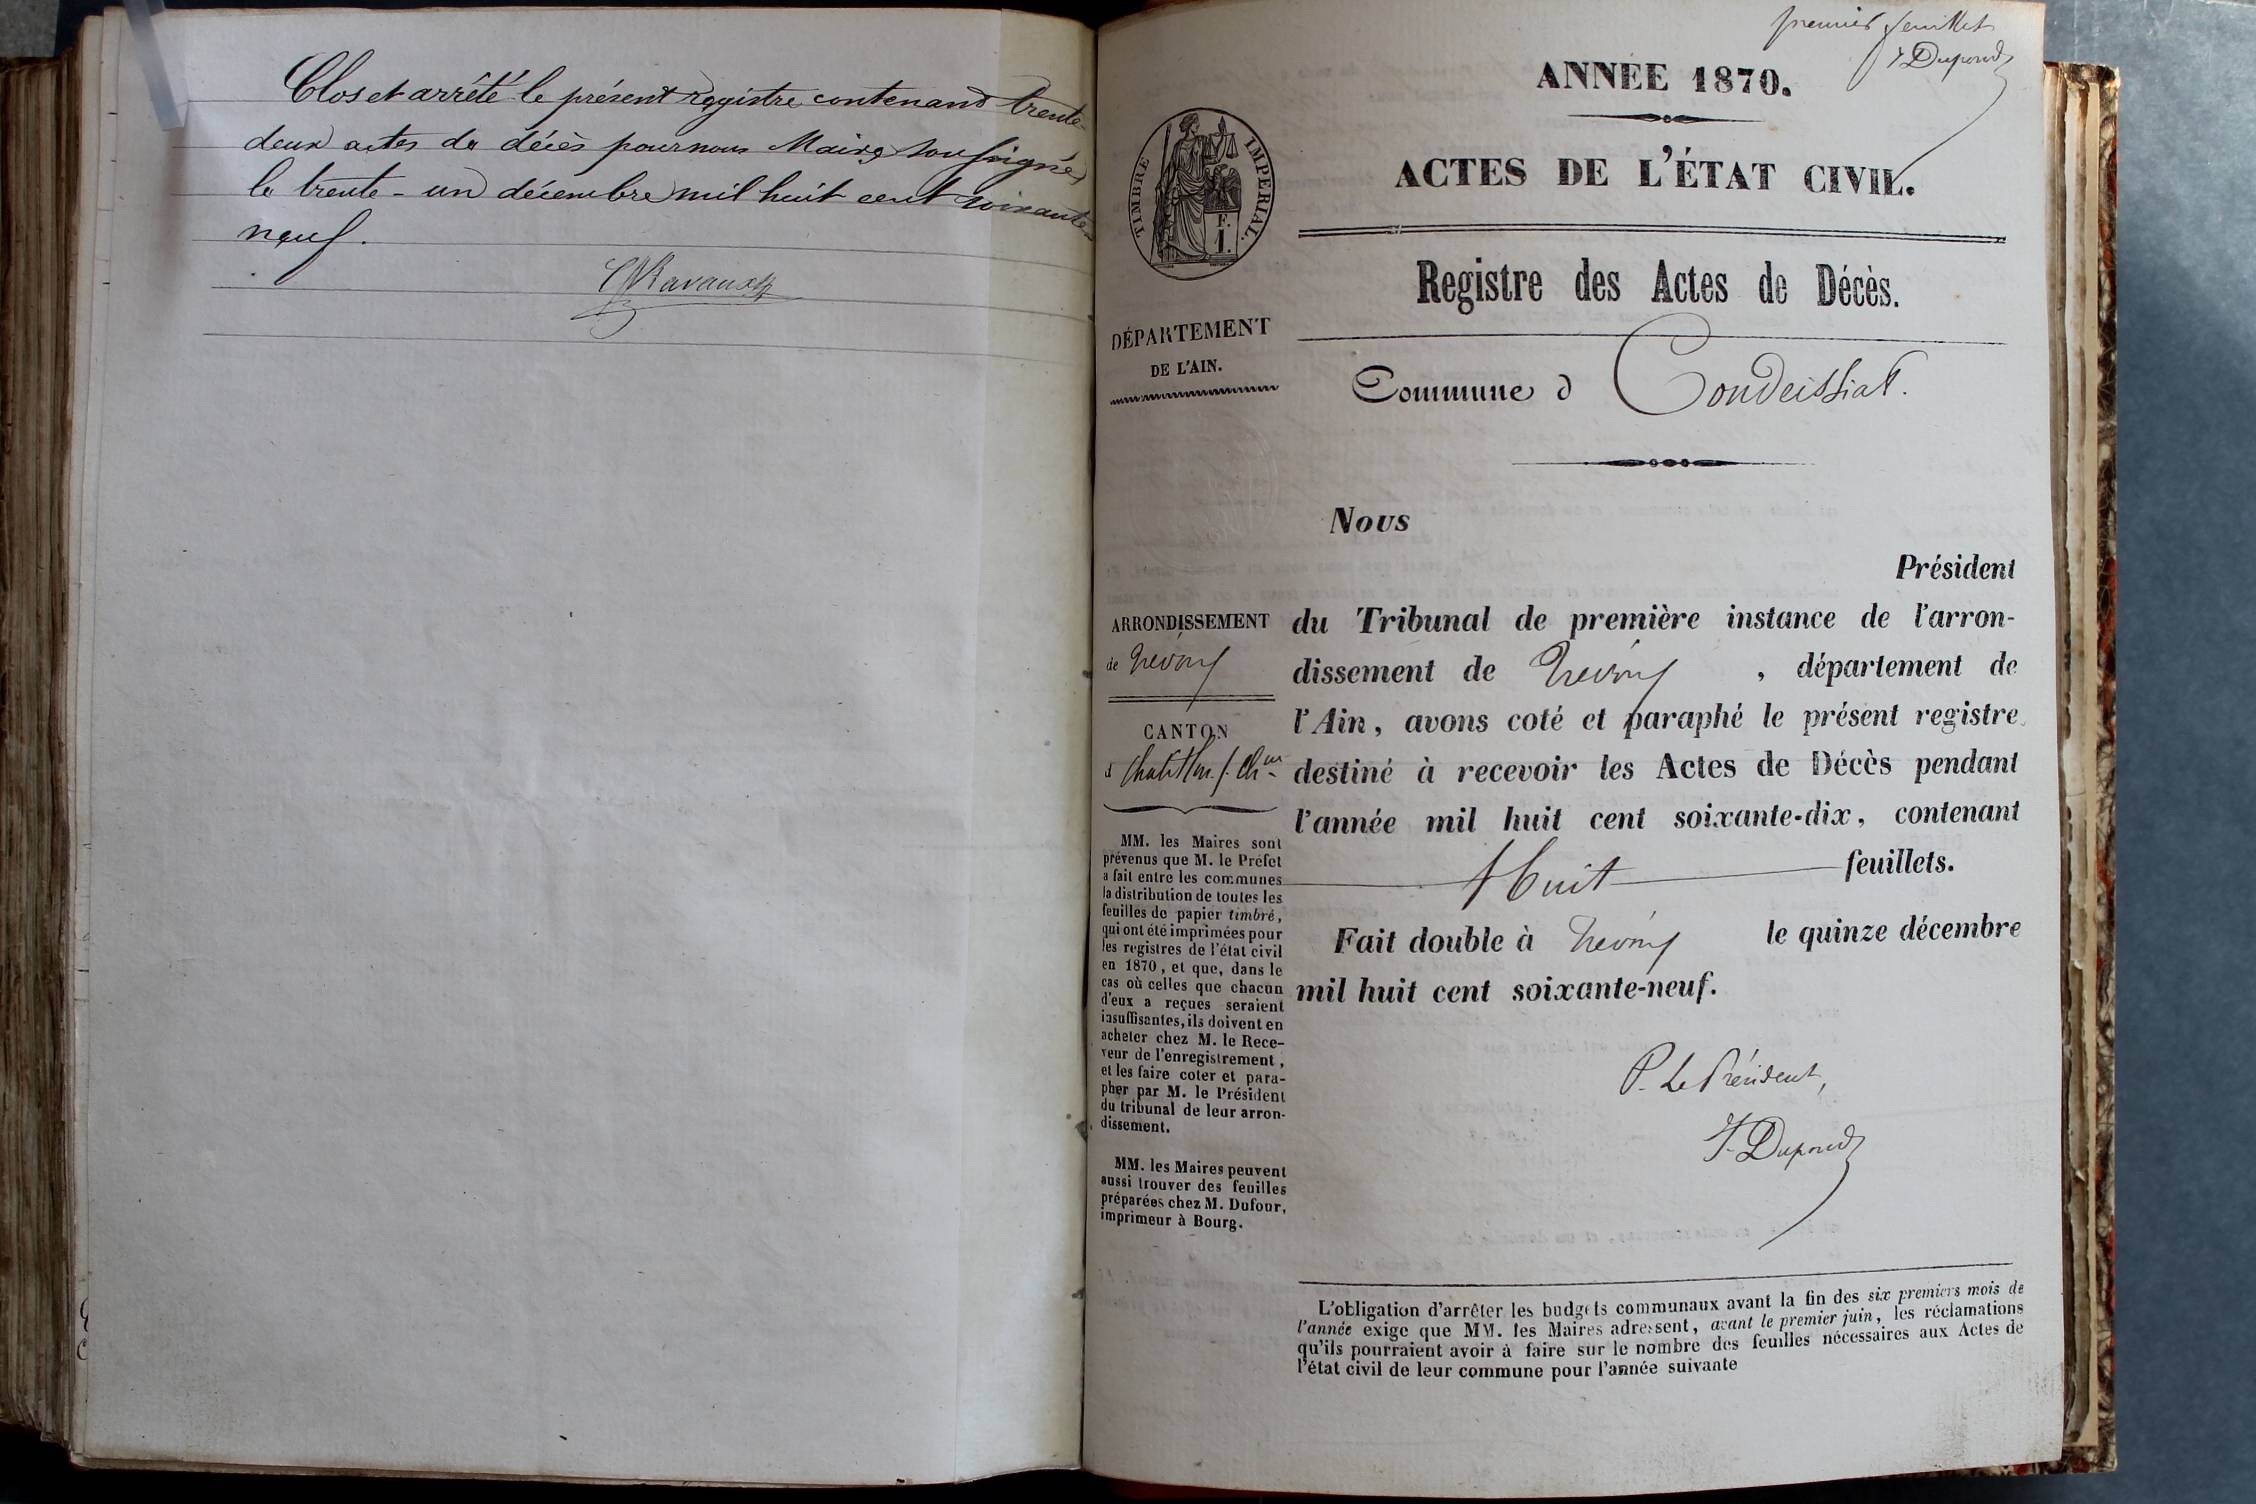 Clos et arrêté le présent registre contenant trente
deux actes de décès pour nous Maire soussigné
le trente-un décembre mil huit cent soixante
neuf.
premier feuillet
F Dupond
ANNÉE 1870.
ACTES DE L'ÉTAT CIVIL.
TIMBRE IMPERIAL.
F.
1.
Registre des Actes de Décès.
DÉPARTEMENT
DE L'AIN.
Commune d Condeissiat.
Nous
Président
ARRONDISSEMENT
de Trévoux
CANTON
d Chatillon s. Ch.ne
du Tribunal de première instance de l'arron-
dissement de Trévoux , département de
l'Ain, avons coté et paraphé le présent registre
destiné à recevoir les Actes de Décès pendant
l'année mil huit cent soixante-dix, contenant
huit feuillets.
Fait double à Trévoux le quinze décembre
mil huit cent soixante-neuf.
P. Le Président,
F. Dupond
MM. les Maires sont
prévenus que M. le Préfet
a fait entre les communes
la distribution de toutes les
feuilles de papier timbré,
qui ont été imprimées pour
les registres de l'état civil
en 1870, et que, dans le
cas où celles que chacun
d'eux a reçues seraient
insuffisantes, ils doivent en
acheter chez M. le Rece-
veur de l'enregistrement,
et les faire coter et para-
pher par M. le Président
du tribunal de leur arron-
dissement.
MM. les Maires peuvent
aussi trouver des feuilles
préparées chez M. Dufour,
imprimeur à Bourg.
L'obligation d'arrêter les budgets communaux avant la fin des six premiers mois de
l'année exige que MM. les Maires adressent, avant le premier juin, les réclamations
qu'ils pourraient avoir à faire sur le nombre des feuilles nécessaires aux Actes de
l'état civil de leur commune pour l'année suivante